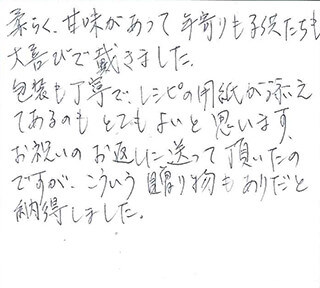 柔らく、甘味があって 年寄りも子供たちも
大喜びで戴きました。
包装も丁寧で、レシピの用紙が添え
てあるのも とてもよいと 思います。
お祝いの お返しに 送って 頂いたの
ですが、こういう 贈り物も ありだと
納得しました。